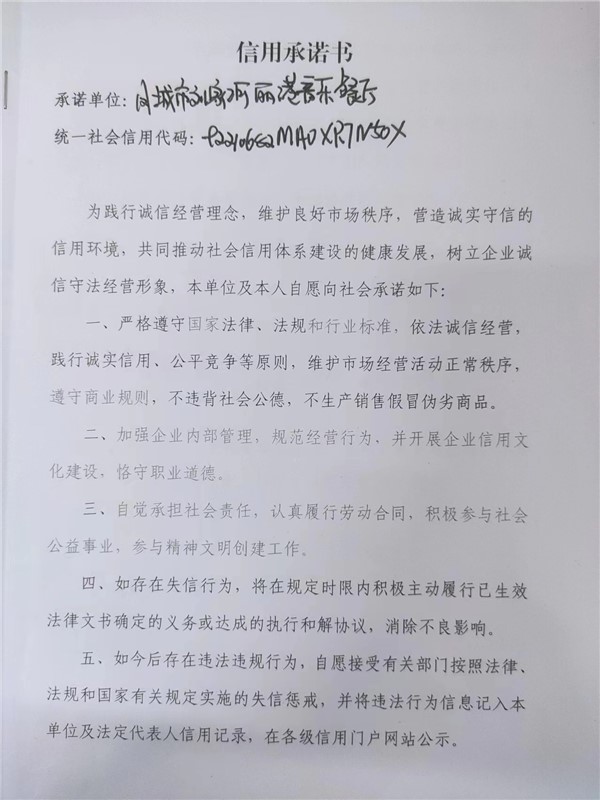 信用承诺书
承诺单位:凤城市刘家河丽港音乐餐厅
统一社会信用代码:92210682MA0XR7N50X
为践行诚信经营理念，维护良好市场秩序，营造诚实守信的
信用环境，共同推动社会信用体系建设的健康发展，树立企业诚
信守法经营形象，本单位及本人自愿向社会承诺如下:
一、严格遵守国家法律、法规和行业标准，依法诚信经营，
践行诚实信用、公平竞争等原则，维护市场经营活动正常秩序，
遵守商业规则，不违背社会公德，不生产销售假冒伪劣商品。
二、加强企业内部管理，规范经营行为，并开展企业信用文
化建设，恪守职业道德。
三、自觉承担社会责任，认真履行劳动合同，积极参与社会
公益事业，参与精神文明创建工作。
四、如存在失信行为，将在规定时限内积极主动履行已生效
法律文书确定的义务或达成的执行和解协议，消除不良影响。
五、如今后存在违法违规行为，自愿接受有关部门按照法律、
法规和国家有关规定实施的失信惩戒，并将违法行为信息记入本
单位及法定代表人信用记录，在各级信用门户网站公示。